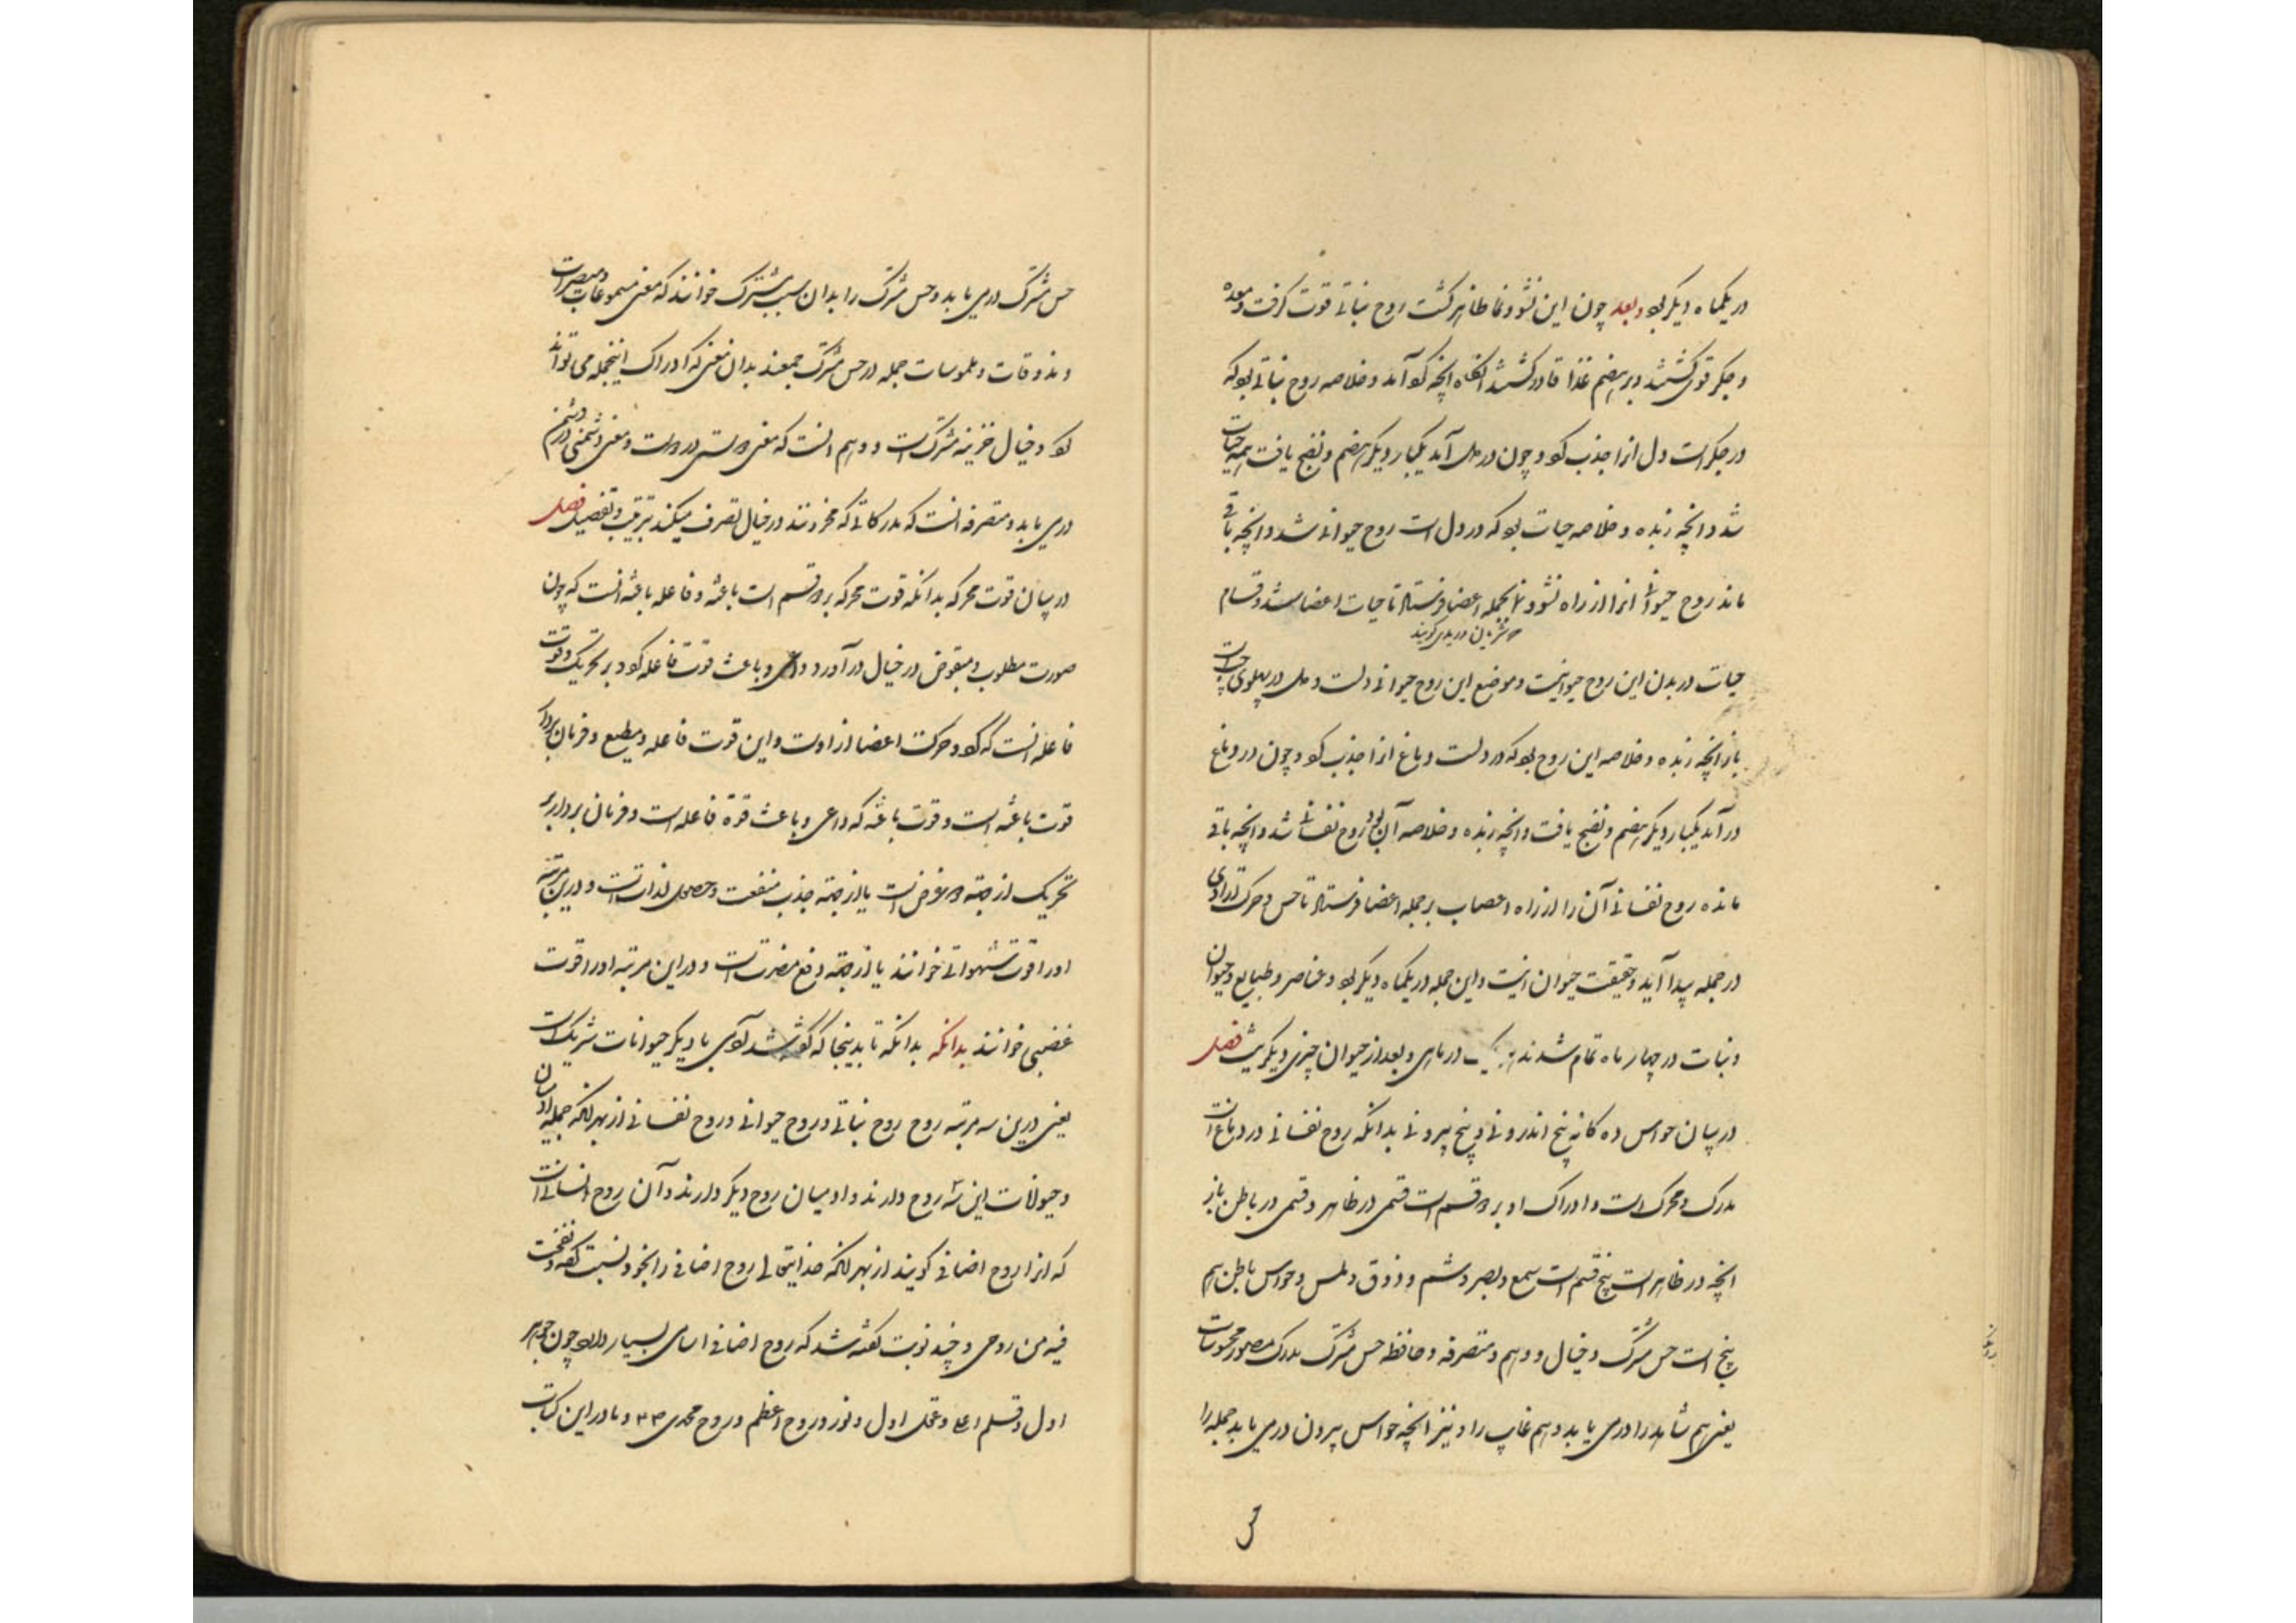 در یکماه دیگر بود و بعد چون این نشو و نما ظاهر گشت روح نباتی قوت گرفت و معده
و جگر قوی گشتند و بر هضم غذا قادر گشتند آنگاه آنچه گوآمد و خلاصه روح نباتی بود که
در جگر است دل آنرا جذب کرد و چون در دل آمد یکبار دیگر هضم و نضج یافت همه حیات
شد و آنچه زبده و خلاصه حیات بود که در دل است روح حیوانی شد و آنچه باقی
ماند روح حیوانی آنرا از راه بجمله اعضا فرستاد تا حیات اعضا شد و قسام
شریان وریدی گویند
حیات در بدن این روح حیوانیست و موضع این روح حیوانی دلست و دل در پهلوی چپ است
باز آنچه زبده و خلاصه این روح بود که در دلست دماغ آنرا جذب کرد و چون در دماغ
درآمد یکبار دیگر هضم و نضج یافت و آنچه زبده و خلاصه آن بود روح نفسانی شد و آنچه باقی
مانده روح نفسانی آن را از راه اعصاب بر جمله اعضا فرستاد تا حس و حرکت ارادی
در جمله پیدا آید و حقیقت حیوان اینست و این جمله در یکماه دیگر بود و عناصر و طبایع و حیوان
و نبات در چهار ماه تمام شدند هر یک در ماهی و بعد از حیوان چیزی دیگر نیست فصل
در بیان حواس ده گانه پنج اندرونی و پنج بیرونی بدانکه روح نفسانی در دماغ است
مدرک و محرک است و ادراک او بر دو قسم است قسمی در ظاهر و قسمی در باطن باز
آنچه در ظاهر است پنج قسم است سمع و بصر و شم و ذوق و لمس و حواس باطن هم
پنج است حس مشترک و خیال و وهم و متصرفه و حافظه حس مشترک مدرک صور محسوسات
یعنی هم شاهد را درمی یابد و هم غایب را و نیز آنچه حواس بیرون درمی یابد جمله را
حس مشترک درمی یابد و حس مشترک را بدان سبب مشترک خوانند که معنی مسموعات و مبصرات
و مذوقات و ملموسات جمله در حس مشترک جمعند بدان معنی که ادراک اینجمله می تواند
کرد و خیال خزینه مشترک است و وهم آنست که معنی دوستی در دوست و معنی دشمنی در دشمن
درمی یابد و متصرفه آنست که مدرکاتی که مخزونند در خیال تصرف میکند بترتیب و تفصیل فصل
در بیان قوت محرکه بدانکه قوت محرکه بر دو قسم است باعثه و فاعله باعثه آنست که چون
صورت مطلوب و مبغوض در خیال درآورد داعی و باعث قوت فاعله گردد بر تحریک و قوت
فاعله آنست که کرد و حرکت اعضا از اوست و این قوت فاعله و مطیع و فرمان بردار
قوت باعثه است و قوت باعثه که داعی و باعث قوة فاعله است و فرمان بردار بر
تحریک از جهته دو غرض است یا از جهته جذب منفعت و حصول لذاتست و درین مرتبه
او را قوت شهوانی خوانند یا از جهته دفع مضرتست و در این مرتبه او را قوت
غضبی خوانند بدانکه بدانکه تا بدینجا که گفته شد آدمی با دیگر حیوانات شریک است
یعنی درین سه مرتبه روح روح نباتی و روح حیوانی و روح نفسانی از بهر آنکه جمله آدمیان
و حیوانات این سه روح دارند و آدمیان روح دیگر دارند و آن روح انسانی است
که آنرا روح اضافی گویند از بهر آنکه خدایتعالی روح اضافی را بخود نسبت کرد و نفخت
فیه من روحی و چند نوبت گفته شد که روح اضافی اسامی بسیار دارد چون جوهر
اول و قلم اعلی و عقل اول و نور و روح اعظم و روح محمدی و ما در این کتاب